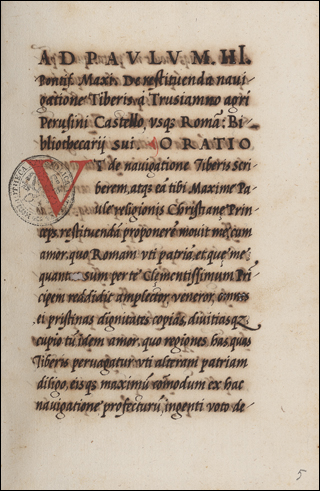 AD PAVLVM. III.
Pontif. Maxi. De restituenda naui-
gatione Tiberis à Trusiamno agri
Perusini Castello, vsqȝ Romã: Bi-
bliothecarij sui. ORATIO
VT de nauigatione Tiberis scri
berem, atqȝ eã tibi Maxime Pa-
ule religionis Christianę Prin-
ceps, restituendã proponere mouit me, cum
amor, quo Romam vti patria, et quę me
quantã sum per te Clementissimum Pri
cipem reddidit amplector, veneror,
et pristinas dignitates copias, diuitiasqȝ
cupio tũ idem amor, quo regiones has quas
Tiberis peruagatur vti alteram patriam
diligo, eisqȝ maximũ cõmodum ex hac
nauigatione profecturũ, ingenti voto de-
5